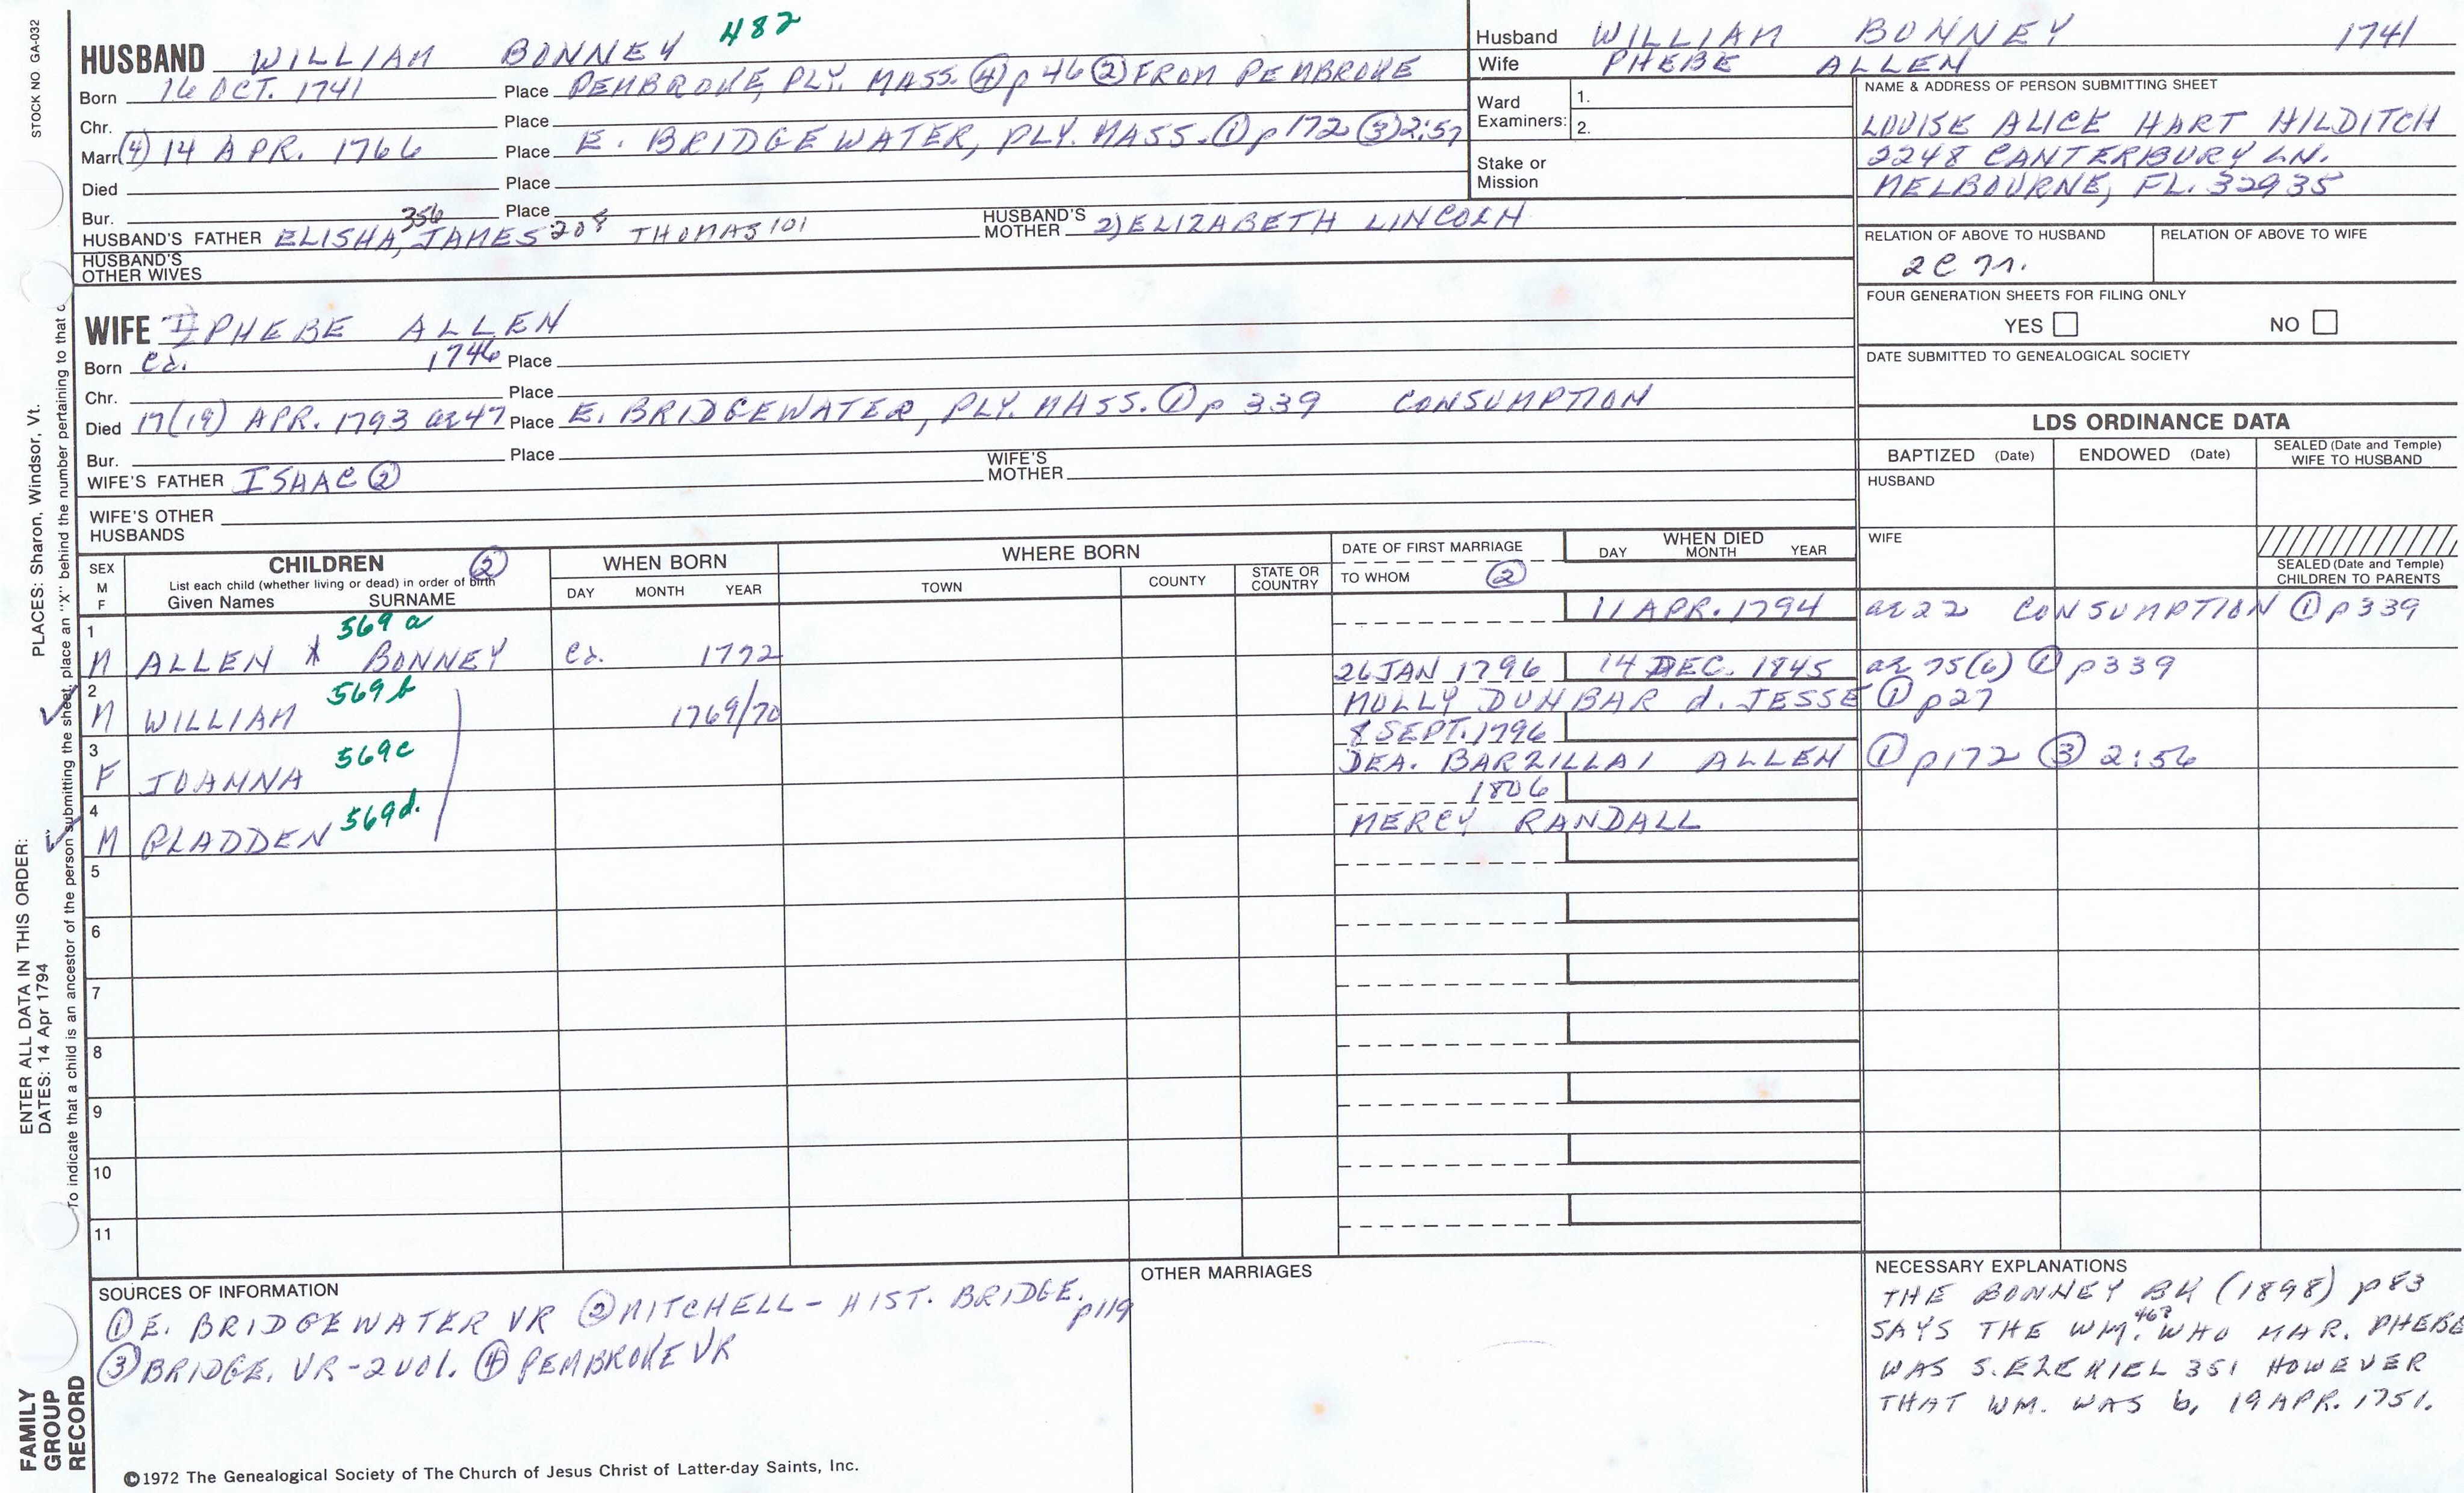 STOCK NO. GA-032
PLACES: Sharon, Windsor, Vt.
ENTER ALL DATA IN THIS ORDER:
DATES: 14 Apr 1794
To indicate that a child is an ancestor of the person submitting the sheet, place an "X" behind the number pertaining to that c
FAMILY
GROUP
RECORD
482
HUSBAND WILLIAM BONNEY
Born 16 OCT. 1741 Place PEMBROKE, PLY. MASS. ④ p 46 ② FROM PEMBROKE
Chr. Place
Marr (4) 14 APR. 1766 Place E. BRIDGEWATER, PLY. MASS. ① p 172 ③ 2:57
Died Place
Bur. Place
HUSBAND'S FATHER ELISHA, 356 JAMES 208 THOMAS 101 HUSBAND'S MOTHER 2) ELIZABETH LINCOLN
HUSBAND'S OTHER WIVES
Husband WILLIAM BONNEY 1741
Wife PHEBE ALLEN
Ward Examiners: 1.
2.
Stake or Mission
NAME & ADDRESS OF PERSON SUBMITTING SHEET
LOUISE ALICE HART HILDITCH
2248 CANTERBURY LN.
MELBOURNE, FL. 32935
RELATION OF ABOVE TO HUSBAND RELATION OF ABOVE TO WIFE
2C
FOUR GENERATION SHEETS FOR FILING ONLY
YES NO
DATE SUBMITTED TO GENEALOGICAL SOCIETY
WIFE PHEBE ALLEN
Born ca. 1746 Place
Chr. Place
Died 17(19) APR. 1793 ae 47 Place E. BRIDGEWATER, PLY. MASS. ① p 339 CONSUMPTION
Bur. Place
WIFE'S FATHER ISAAC ② WIFE'S MOTHER
WIFE'S OTHER HUSBANDS
LDS ORDINANCE DATA
BAPTIZED (Date) ENDOWED (Date) SEALED (Date and Temple) WIFE TO HUSBAND
HUSBAND
WIFE
SEALED (Date and Temple) CHILDREN TO PARENTS
SEX M F
CHILDREN ②
List each child (whether living or dead) in order of birth
Given Names SURNAME
WHEN BORN
DAY MONTH YEAR
WHERE BORN
TOWN COUNTY STATE OR COUNTRY
DATE OF FIRST MARRIAGE
TO WHOM ②
WHEN DIED
DAY MONTH YEAR
1 569 a 11 APR. 1794 ae 22 CONSUMPTION ① p 339
M ALLEN BONNEY ca. 1772
2 569 b 26 JAN 1796 14 DEC. 1845 ae 75(6) ① p 339
M WILLIAM 1769/70 MOLLY DUNBAR d. JESSE ① p 27
3 569 c 8 SEPT. 1796
F JOANNA DEA. BARZILLAI ALLEN ① p 172 ③ 2:56
4 569 d. 1806
M PLADDEN MERCY RANDALL
5
6
7
8
9
10
11
SOURCES OF INFORMATION
① E. BRIDGEWATER VR ② MITCHELL - HIST. BRIDGE. p 119
③ BRIDGE. VR - 2 VOL. ④ PEMBROKE VR
OTHER MARRIAGES
NECESSARY EXPLANATIONS
THE BONNEY BK (1898) p 83
SAYS THE WM. 467 WHO MAR. PHEBE
WAS S. EZEKIEL 351 HOWEVER
THAT WM. WAS b. 19 APR. 1751.
©1972 The Genealogical Society of The Church of Jesus Christ of Latter-day Saints, Inc.